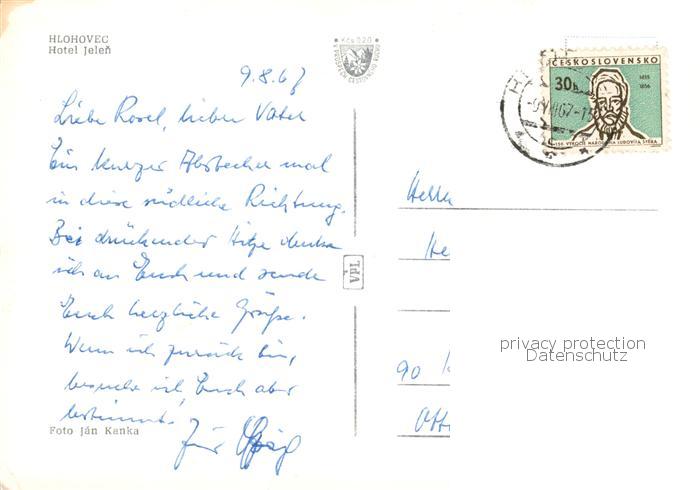 HLOHOVEC
Hotel Jeleň
Kčs 0,20
9.8.67
Liebe Rosel, lieber Vater
Ein kurzer Abstecher mal
in diese südliche Richtung.
Bei drückender Hitze denke
ich an Euch und sende
Euch herzliche Grüße.
Wenn ich zurück bin,
besuche ich Euch aber
bestimmt!
Foto Ján Kanka
VPL
ČESKOSLOVENSKO
30h
1815
1856
150. VÝROČIE NARODENIA ĽUDOVÍTA ŠTÚRA
Herrn
He
90
Ott
privacy protection
Datenschutz